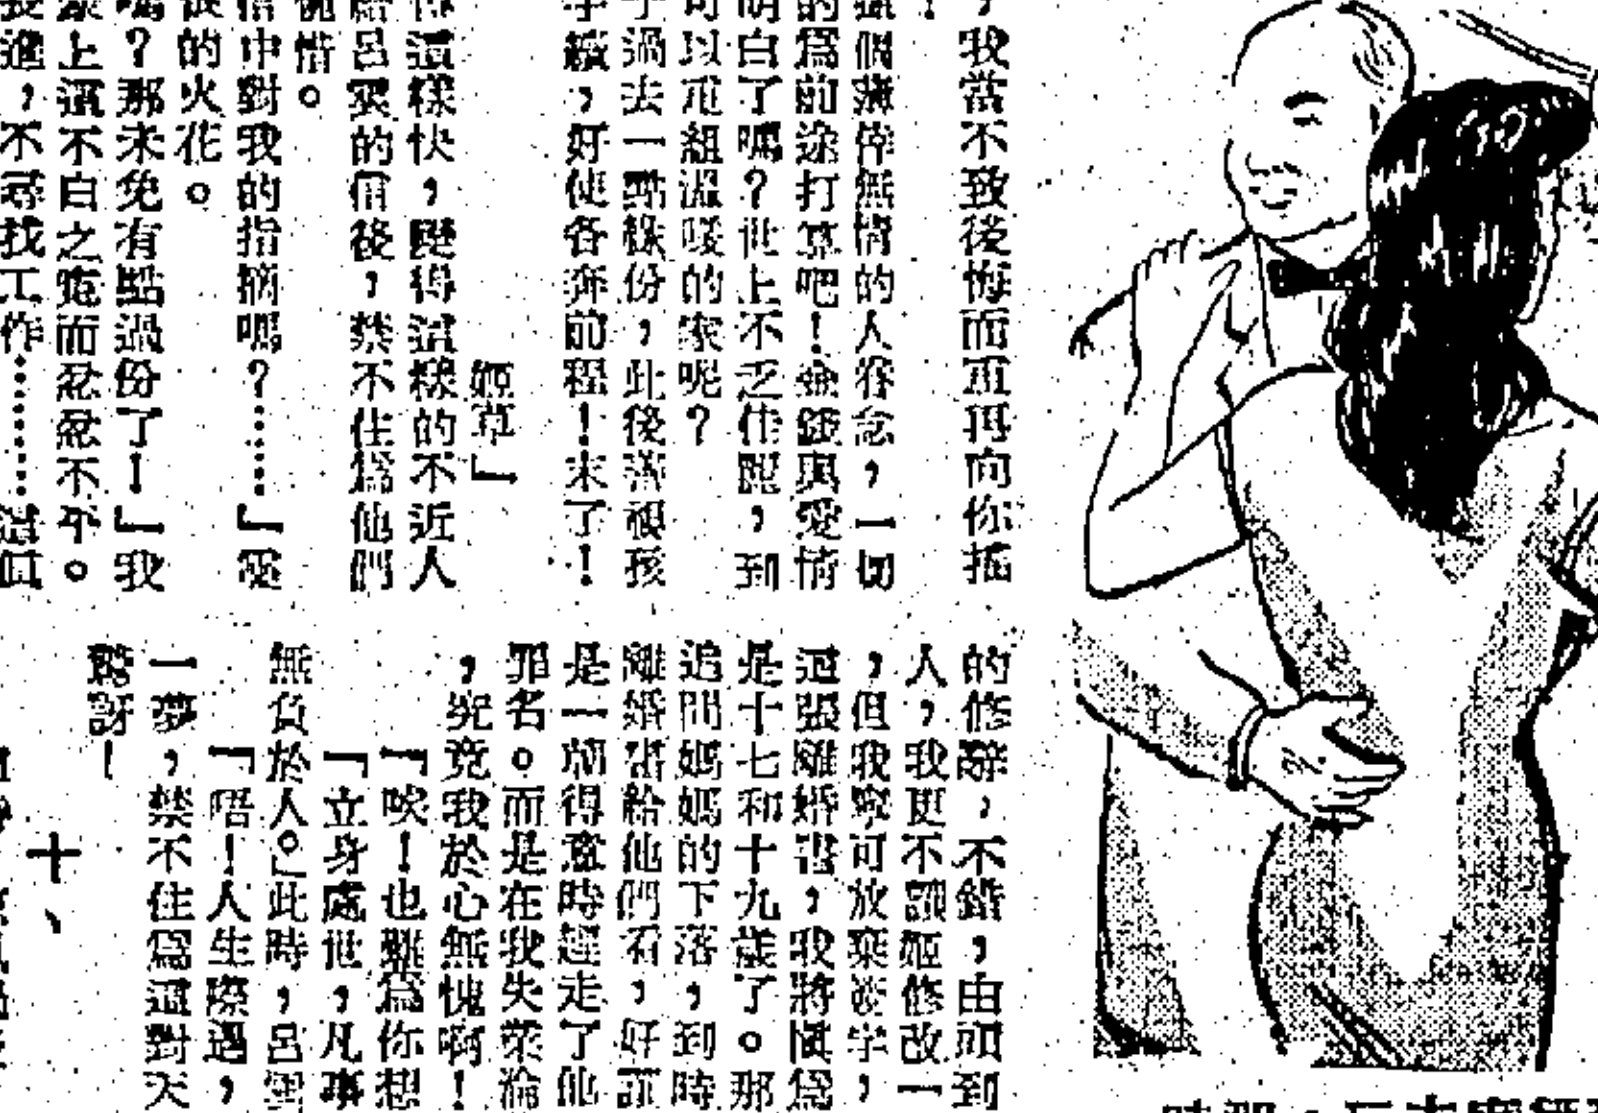 ，我當不致後悔而重再向你搖
！
個薄倖無情的人眷念，一切
的爲前途打算吧！金錢與愛情
明白了嗎？世上不乏佳麗，到
可以重組溫暖的家呢？
子過去一點緣份，此後善視孩
手續，好使各奔前程！末了！
姬草」
這樣快，變得這樣的不近人
給呂雲的信後，禁不住爲他們
惋惜。
信中對我的指摘嗎？……」靈
的火花。
嗎？那未免有點過份了！」我
蒙上這不白之冤而忿忿不平。
進，不尋找工作………這眞
的修辭，不錯，由頭到
人，我更不讓姬修改一
，但我寧可放棄簽字，
這張離婚書，我將愼爲
是十七和十九歲了。那
追問媽媽的下落，到時
離婚書給他們看，好証
是一個得意時趕走了他
罪名。而是在我失業淪
，究竟我於心無愧啊！
「唉！也難爲你想
「立身處世，凡事
無負於人。」此時，呂雲
「唔！人生際遇，
一夢，禁不住爲這對夭
驚訝！
十、